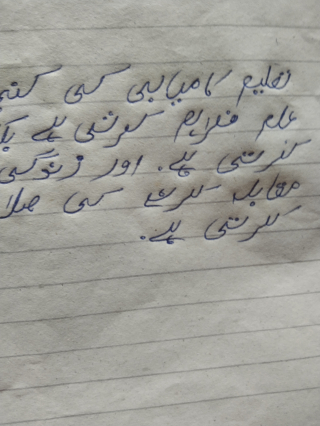 تعلیم کامیابی کی کنجی
علم فراہم کرتی ہے
کرتی ہے. اور زندگی
مقابلہ کرنے کی صلا
کرتی ہے.